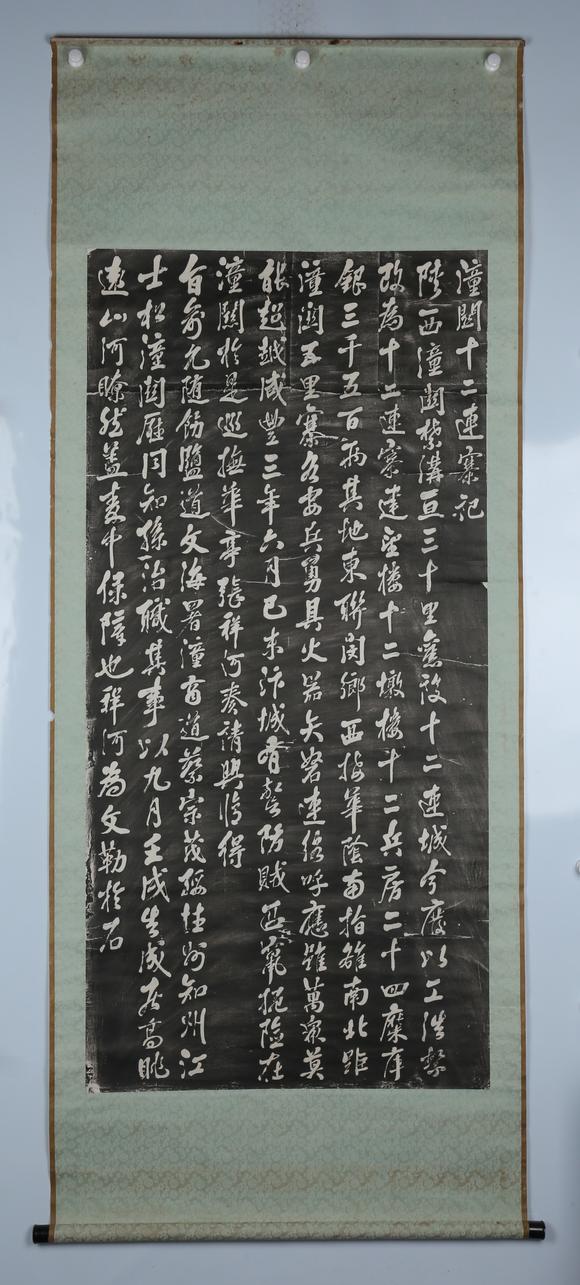 潼關十二連寨記
陝西潼關禁溝亘三十里舊設十二連城今廢以工浩繁
改為十二連寨建望樓十二墩樓十二兵房二十四糜庫
銀三千五百兩其地東聯閿鄉西接華陰南指雒南北距
潼關五里寨各安兵勇具火器矢弩連絡呼應雖萬眾莫
能超越咸豐三年六月己未汴城有警防賊西竄扼險在
潼關於是巡撫華亭張祥河奏請興修得
旨俞允隨飭鹽道文海署潼商道蔡宗茂綏德州知州江
士松潼關廳同知孫治職其事以九月壬戌告成居高眺
遠山河瞭然益麥中保障也祥河為文勒於石